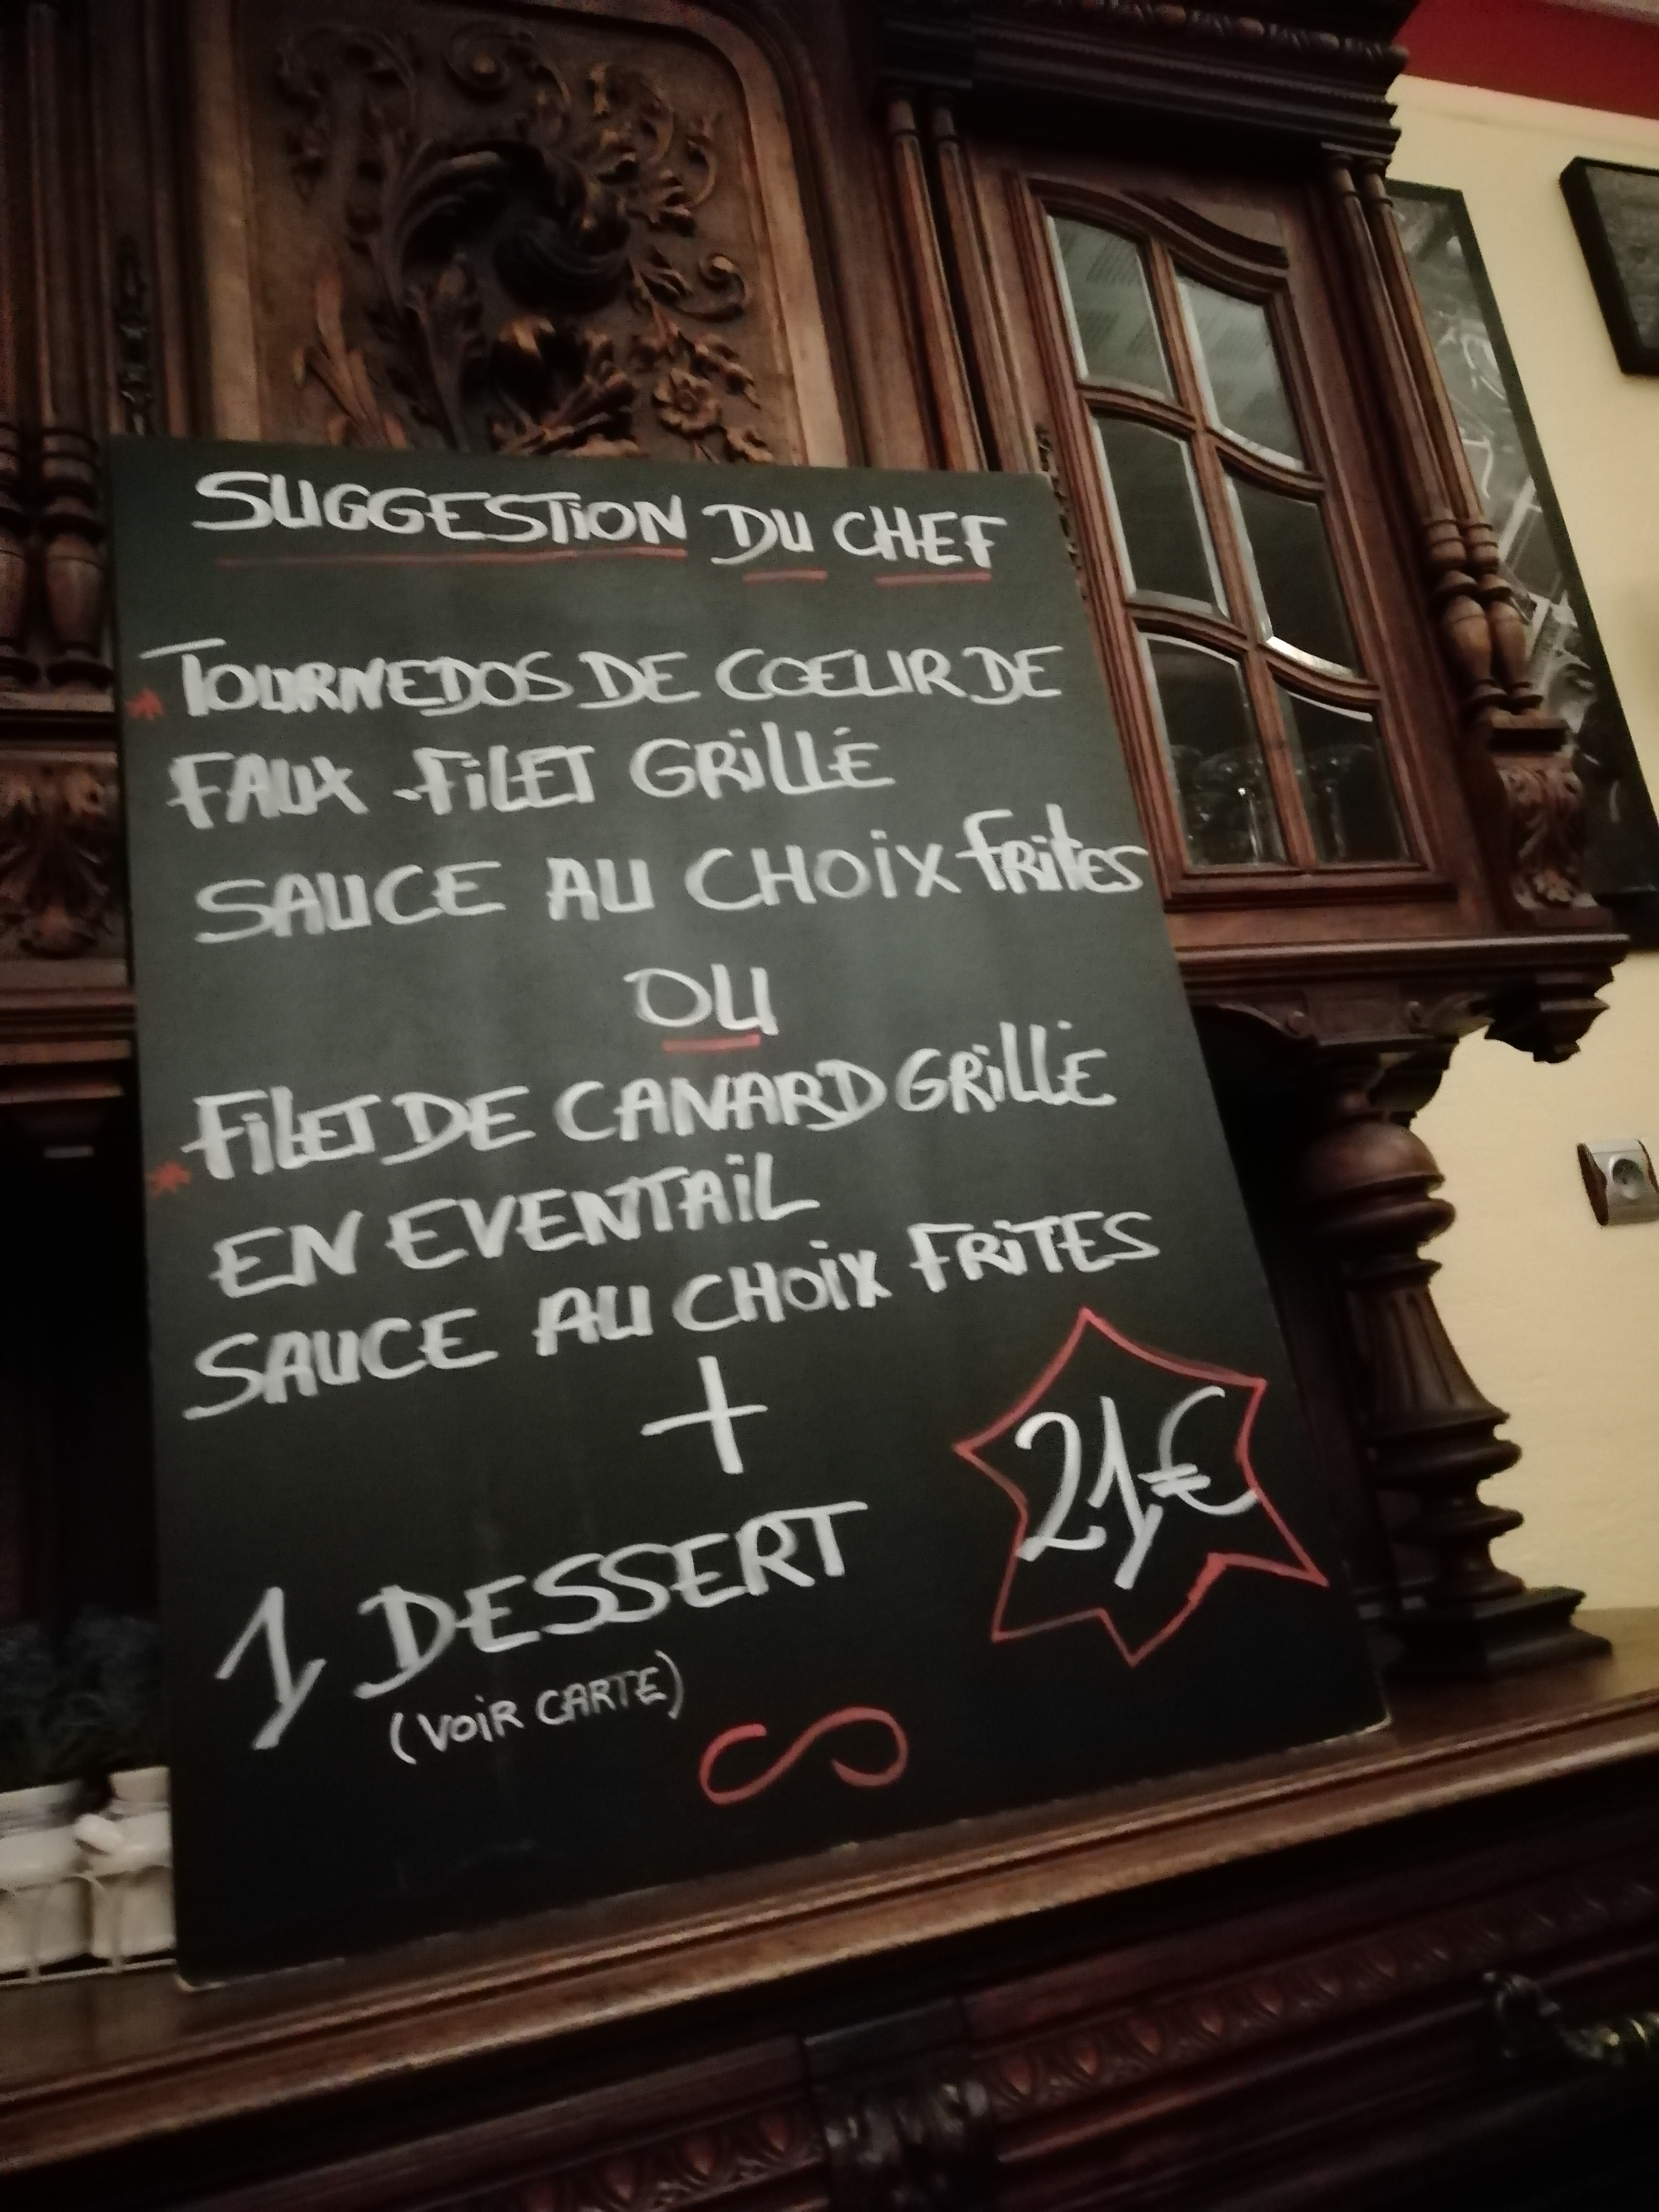 SUGGESTION DU CHEF
* TOURNEDOS DE COEUR DE
FAUX-FILET GRILLÉ
SAUCE AU CHOIX FRITES
OU
* FILET DE CANARD GRILLÉ
EN EVENTAIL
SAUCE AU CHOIX FRITES
+
1 DESSERT
21€
(VOIR CARTE)